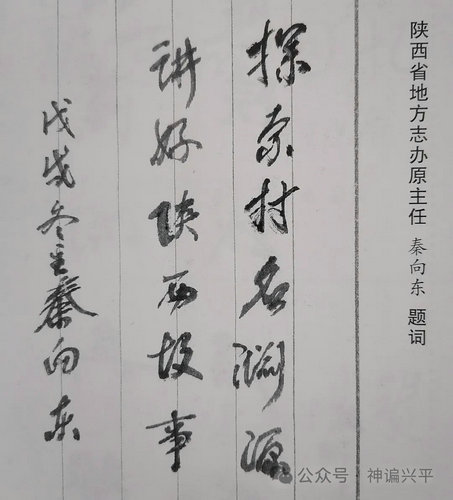 陕西省地方志办原主任 秦向东 题词
探索村名渊源
讲好陕西故事
戊戌冬至秦向东
公众号·神谝兴平